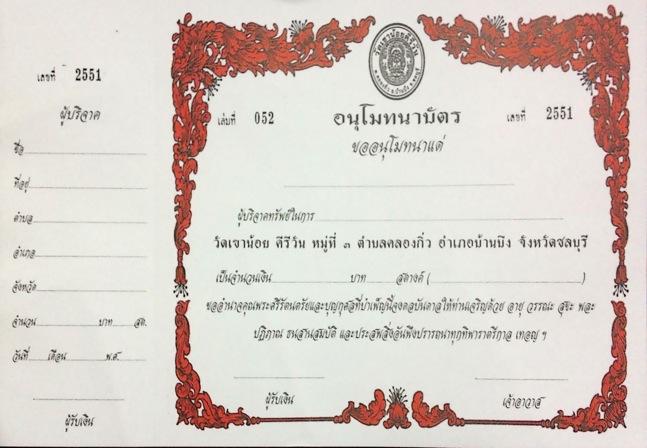 เลขที่ 2551
ผู้บริจาค
ชื่อ
ที่อยู่
ตำบล
อำเภอ
จังหวัด
จำนวน บาท สต.
วันที่ เดือน พ.ศ.
ผู้รับเงิน
วัดเขาน้อยคีรีวัน
เล่มที่ 052 อนุโมทนาบัตร เลขที่ 2551
ขออนุโมทนาแด่
ผู้บริจาคทรัพย์ในการ
วัดเขาน้อย คีรีวัน หมู่ที่ ๓ ตำบลคลองกิ่ว อำเภอบ้านบึง จังหวัดชลบุรี
เป็นจำนวนเงิน บาท สตางค์ ( )
ขออำนาจคุณพระศรีรัตนตรัยและบุญกุศลที่บำเพ็ญนี้จงดลบันดาลให้ท่านเจริญด้วย อายุ วรรณะ สุขะ พละ
ปฏิภาณ ธนสารสมบัติ และประสพสิ่งอันพึงปรารถนาทุกทิพาราตรีกาล เทอญ ฯ
ผู้รับเงิน เจ้าอาวาส